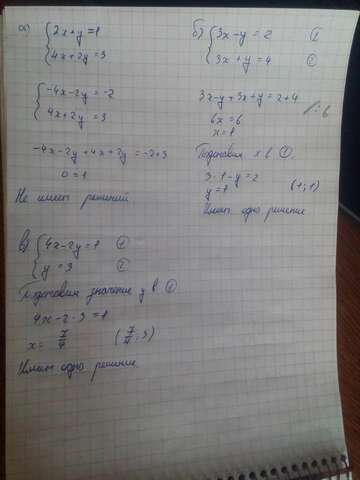 а) { 2x+y=1
4x+2y=3
{ -4x-2y=-2
4x+2y=3
-4x-2y+4x+2y=-2+3
0=1
Не имеет решений
б) { 3x-y=2 ①
3x+y=4 ②
3x-y+3x+y=2+4
6x=6 /:6
x=1
Подставим x в ①.
3·1-y=2
y=1 (1;1)
Имеет одно решение
в) { 4x-2y=1 ①
y=3 ②
Подставим значение y в ①
4x-2·3=1
x= 7/4 (7/4;3)
Имеет одно решение